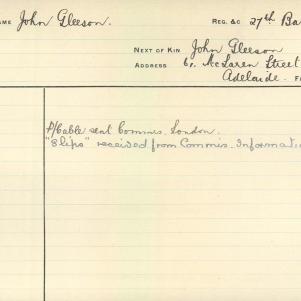 AME John Gleeson REG. &c 27th Ba
NEXT OF KIN John Gleeson
ADDRESS McLaren Street
Adelaide. F
P/Cable sent Commis. London.
"Slips" received from Commis. Informati